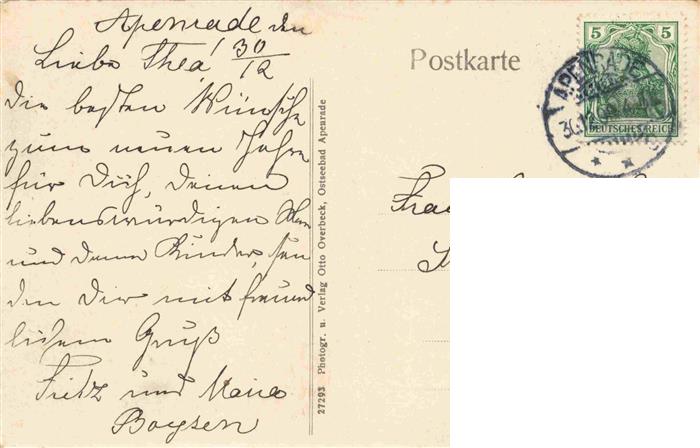 Apenrade den
30/12
Liebe Thea!
Die besten Wünsche
zum neuen Jahre
für Dich, Deinen
liebenswürdigen
und Deine Kinder, sen
den Dir mit freund
lichem Gruß
Fritz und Maria
Boysen
27293 Photogr. u. Verlag Otto Overbeck, Ostseebad Apenrade
Postkarte
5 5
DEUTSCHES REICH
APENRADE
30.12